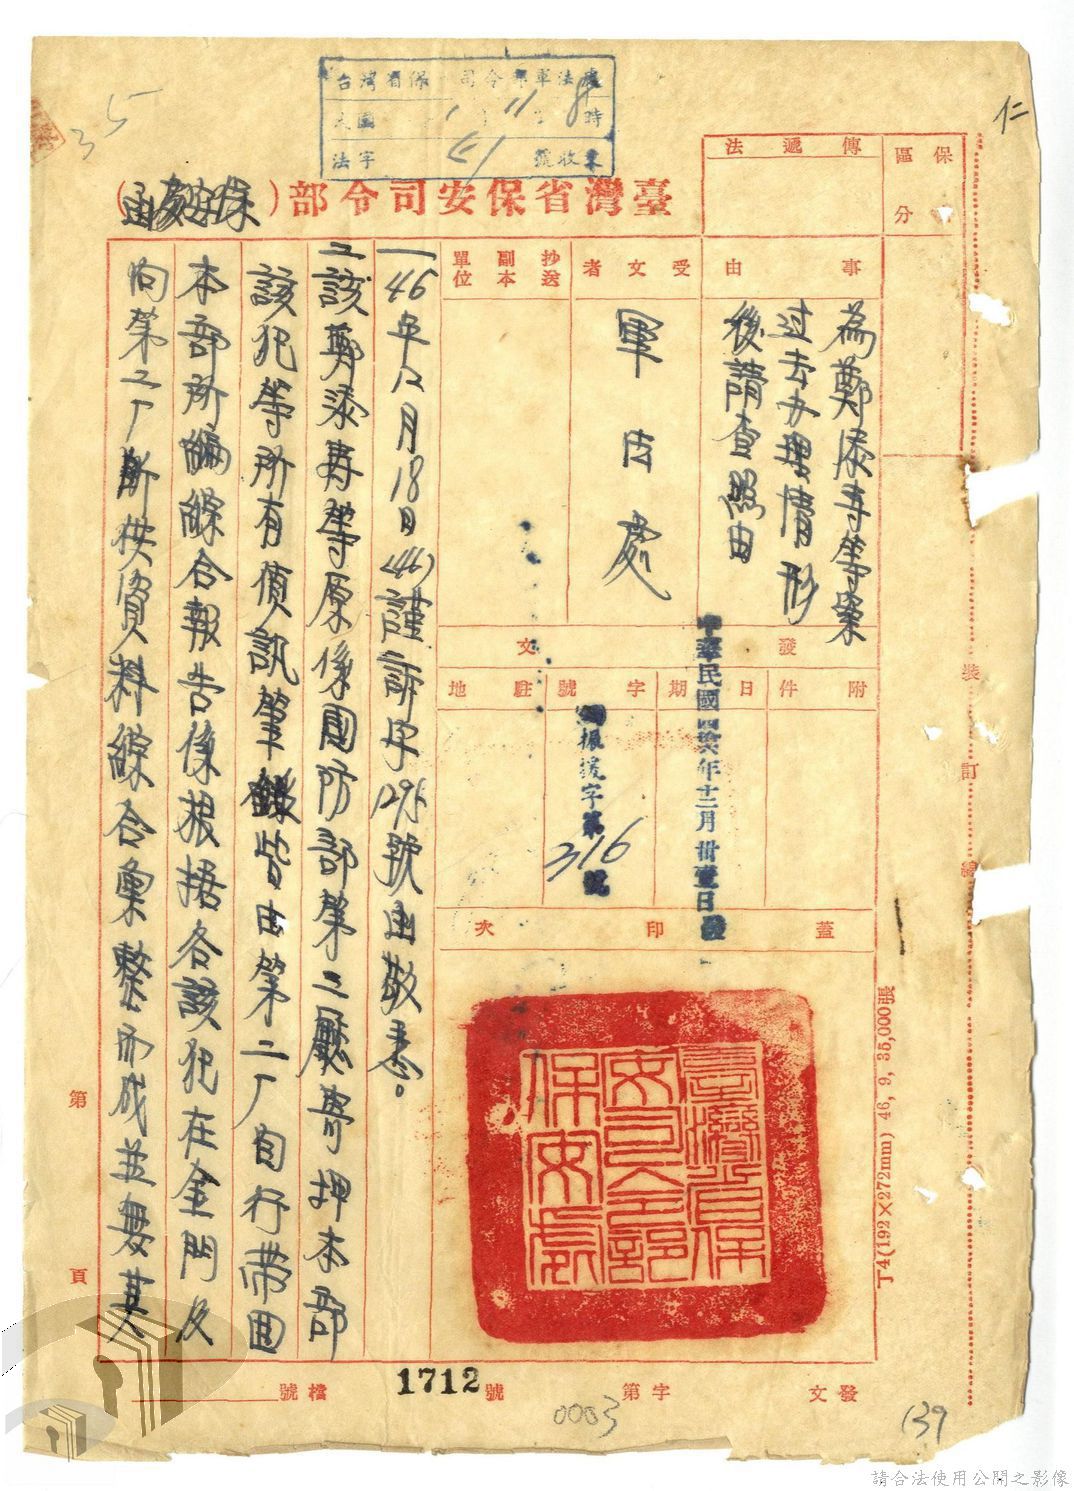 台灣省保 司令部軍法處
民國 1 11 8時
法字 51 號收 
35
仁
臺灣省保安司令部( 函)
保 區分
傳遞法
事由
為鄭添壽等案
过去办理情形
復請查照由
受文者
軍法處
抄送副本單位
發文
附件
日期
中華民國四十六年十二月卅壹日發
字號
振援字第316號
駐地
蓋印次
臺灣省保安司令部保安處
一46年12月18日(46)謹訴字1295號函敬悉。
二該鄭添壽等原係國防部第二廳寄押本部
該犯等所有偵訊筆錄皆由第二厂自行帶回
本部所編綜合報告係根據各該犯在金門及
向第二厂所供資料綜合彙整而成並無其
第 頁
裝訂線
T4(192×272mm) 46, 9, 35,000張
發文 字第 號
1712
檔號
0003
139
請合法使用公開之影像